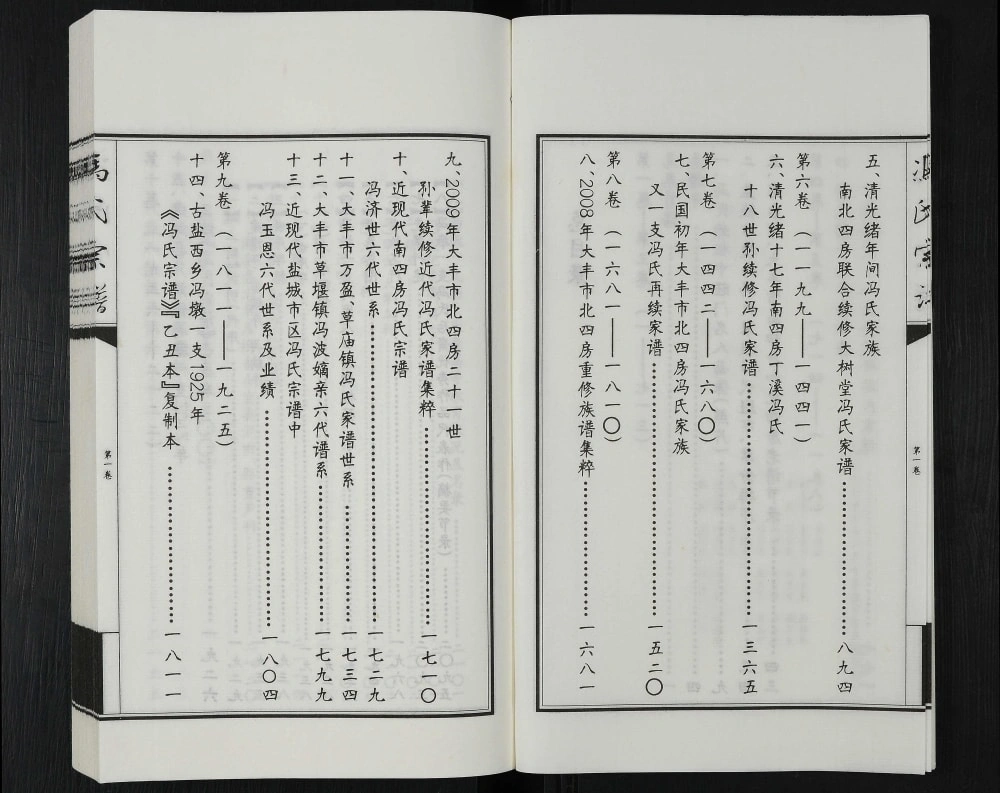 冯氏宗谱
第一卷
五、清光绪年间冯氏家族
南北四房联合续修大树堂冯氏家谱……八九四
第六卷（一一九九——一四四一）
六、清光绪十七年南四房丁溪冯氏
十八世孙续修冯氏家谱……一三六五
第七卷（一四四二——一六八〇）
七、民国初年大丰市北四房冯氏家族
又一支冯氏再续家谱……一五二〇
第八卷（一六八一——一八一〇）
八、2008年大丰市北四房重修族谱集粹……一六八一
九、2009年大丰市北四房二十一世
孙辈续修近代冯氏家谱集粹……一七一〇
十、近现代南四房冯氏宗谱
冯济世六代世系……一七二九
十一、大丰市万盈、草庙镇冯氏家谱世系……一七三四
十二、大丰市草堰镇冯波嫡亲六代谱系……一七九九
十三、近现代盐城市区冯氏宗谱中
冯玉恩六代世系及业绩……一八〇四
第九卷（一八一一——一九二五）
十四、古盐西乡冯墩一支1925年
《冯氏宗谱》『乙丑本』复制本……一八一一
冯氏宗谱
第一卷